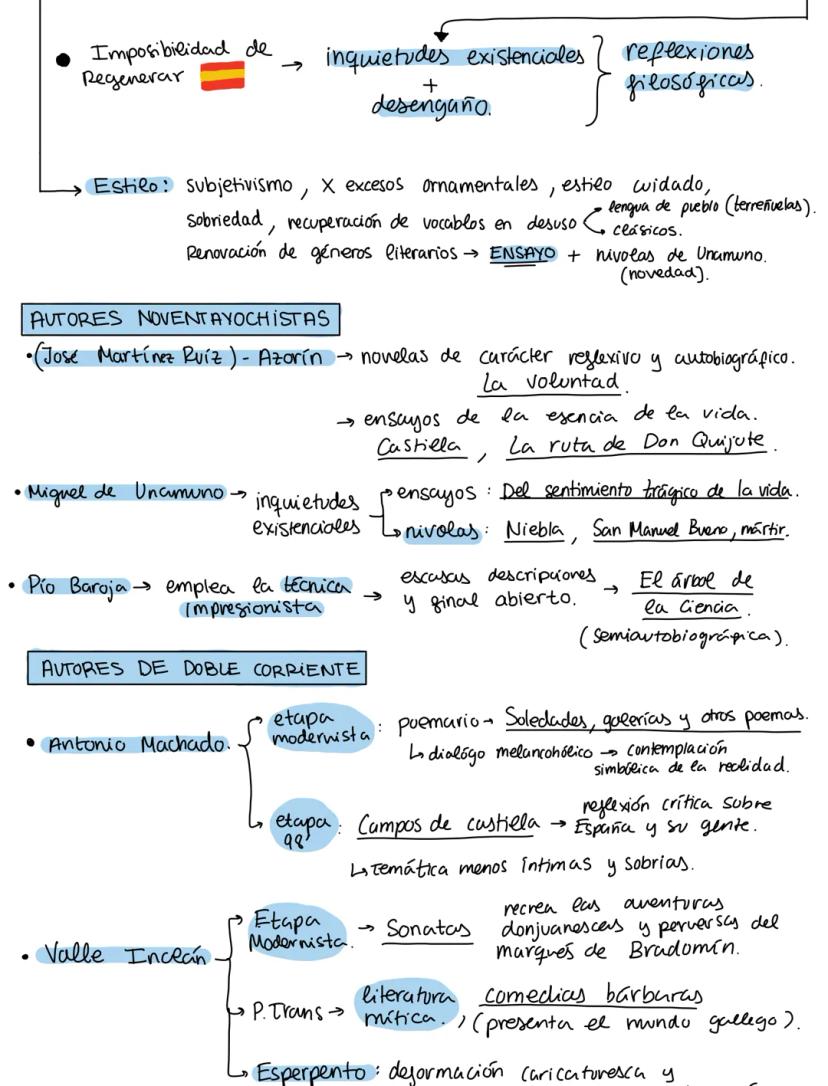 • Imposibilidad de Regenerar → inquietudes existenciales + desengaño. } reflexiones filosóficas.
→ Estilo: subjetivismo, X excesos ornamentales, estilo cuidado,
sobriedad, recuperación de vocablos en desuso < lengua de pueblo (terreñuelas).
clásicos.
Renovación de géneros literarios → ENSAYO + nivolas de Unamuno.
(novedad).
AUTORES NOVENTAYOCHISTAS
• (José Martínez Ruíz) - Azorín → novelas de carácter reflexivo y autobiográfico.
La voluntad.
→ ensayos de la esencia de la vida.
Castilla, La ruta de Don Quijote.
• Miguel de Unamuno → inquietudes existenciales
ensayos: Del sentimiento trágico de la vida.
nivolas: Niebla, San Manuel Bueno, mártir.
• Pío Baroja → emplea la técnica impresionista → escasas descripciones y final abierto. → El árbol de la Ciencia.
(semiautobiográfica).
AUTORES DE DOBLE CORRIENTE
• Antonio Machado.
etapa modernista: poemario → Soledades, galerías y otros poemas.
↳ dialógo melancohólico → contemplación simbólica de la realidad.
etapa 98': Campos de castilla → reflexión crítica sobre España y su gente.
↳ Temática menos íntimas y sobrias.
• Valle Inclán
Etapa Modernista. → Sonatas recrea las aventuras donjuanescas y perversas del marqués de Bradomín.
P. Trans → literatura mítica., comedias bárbaras (presenta el mundo gallego).
Esperpento: deformación caricaturesca y